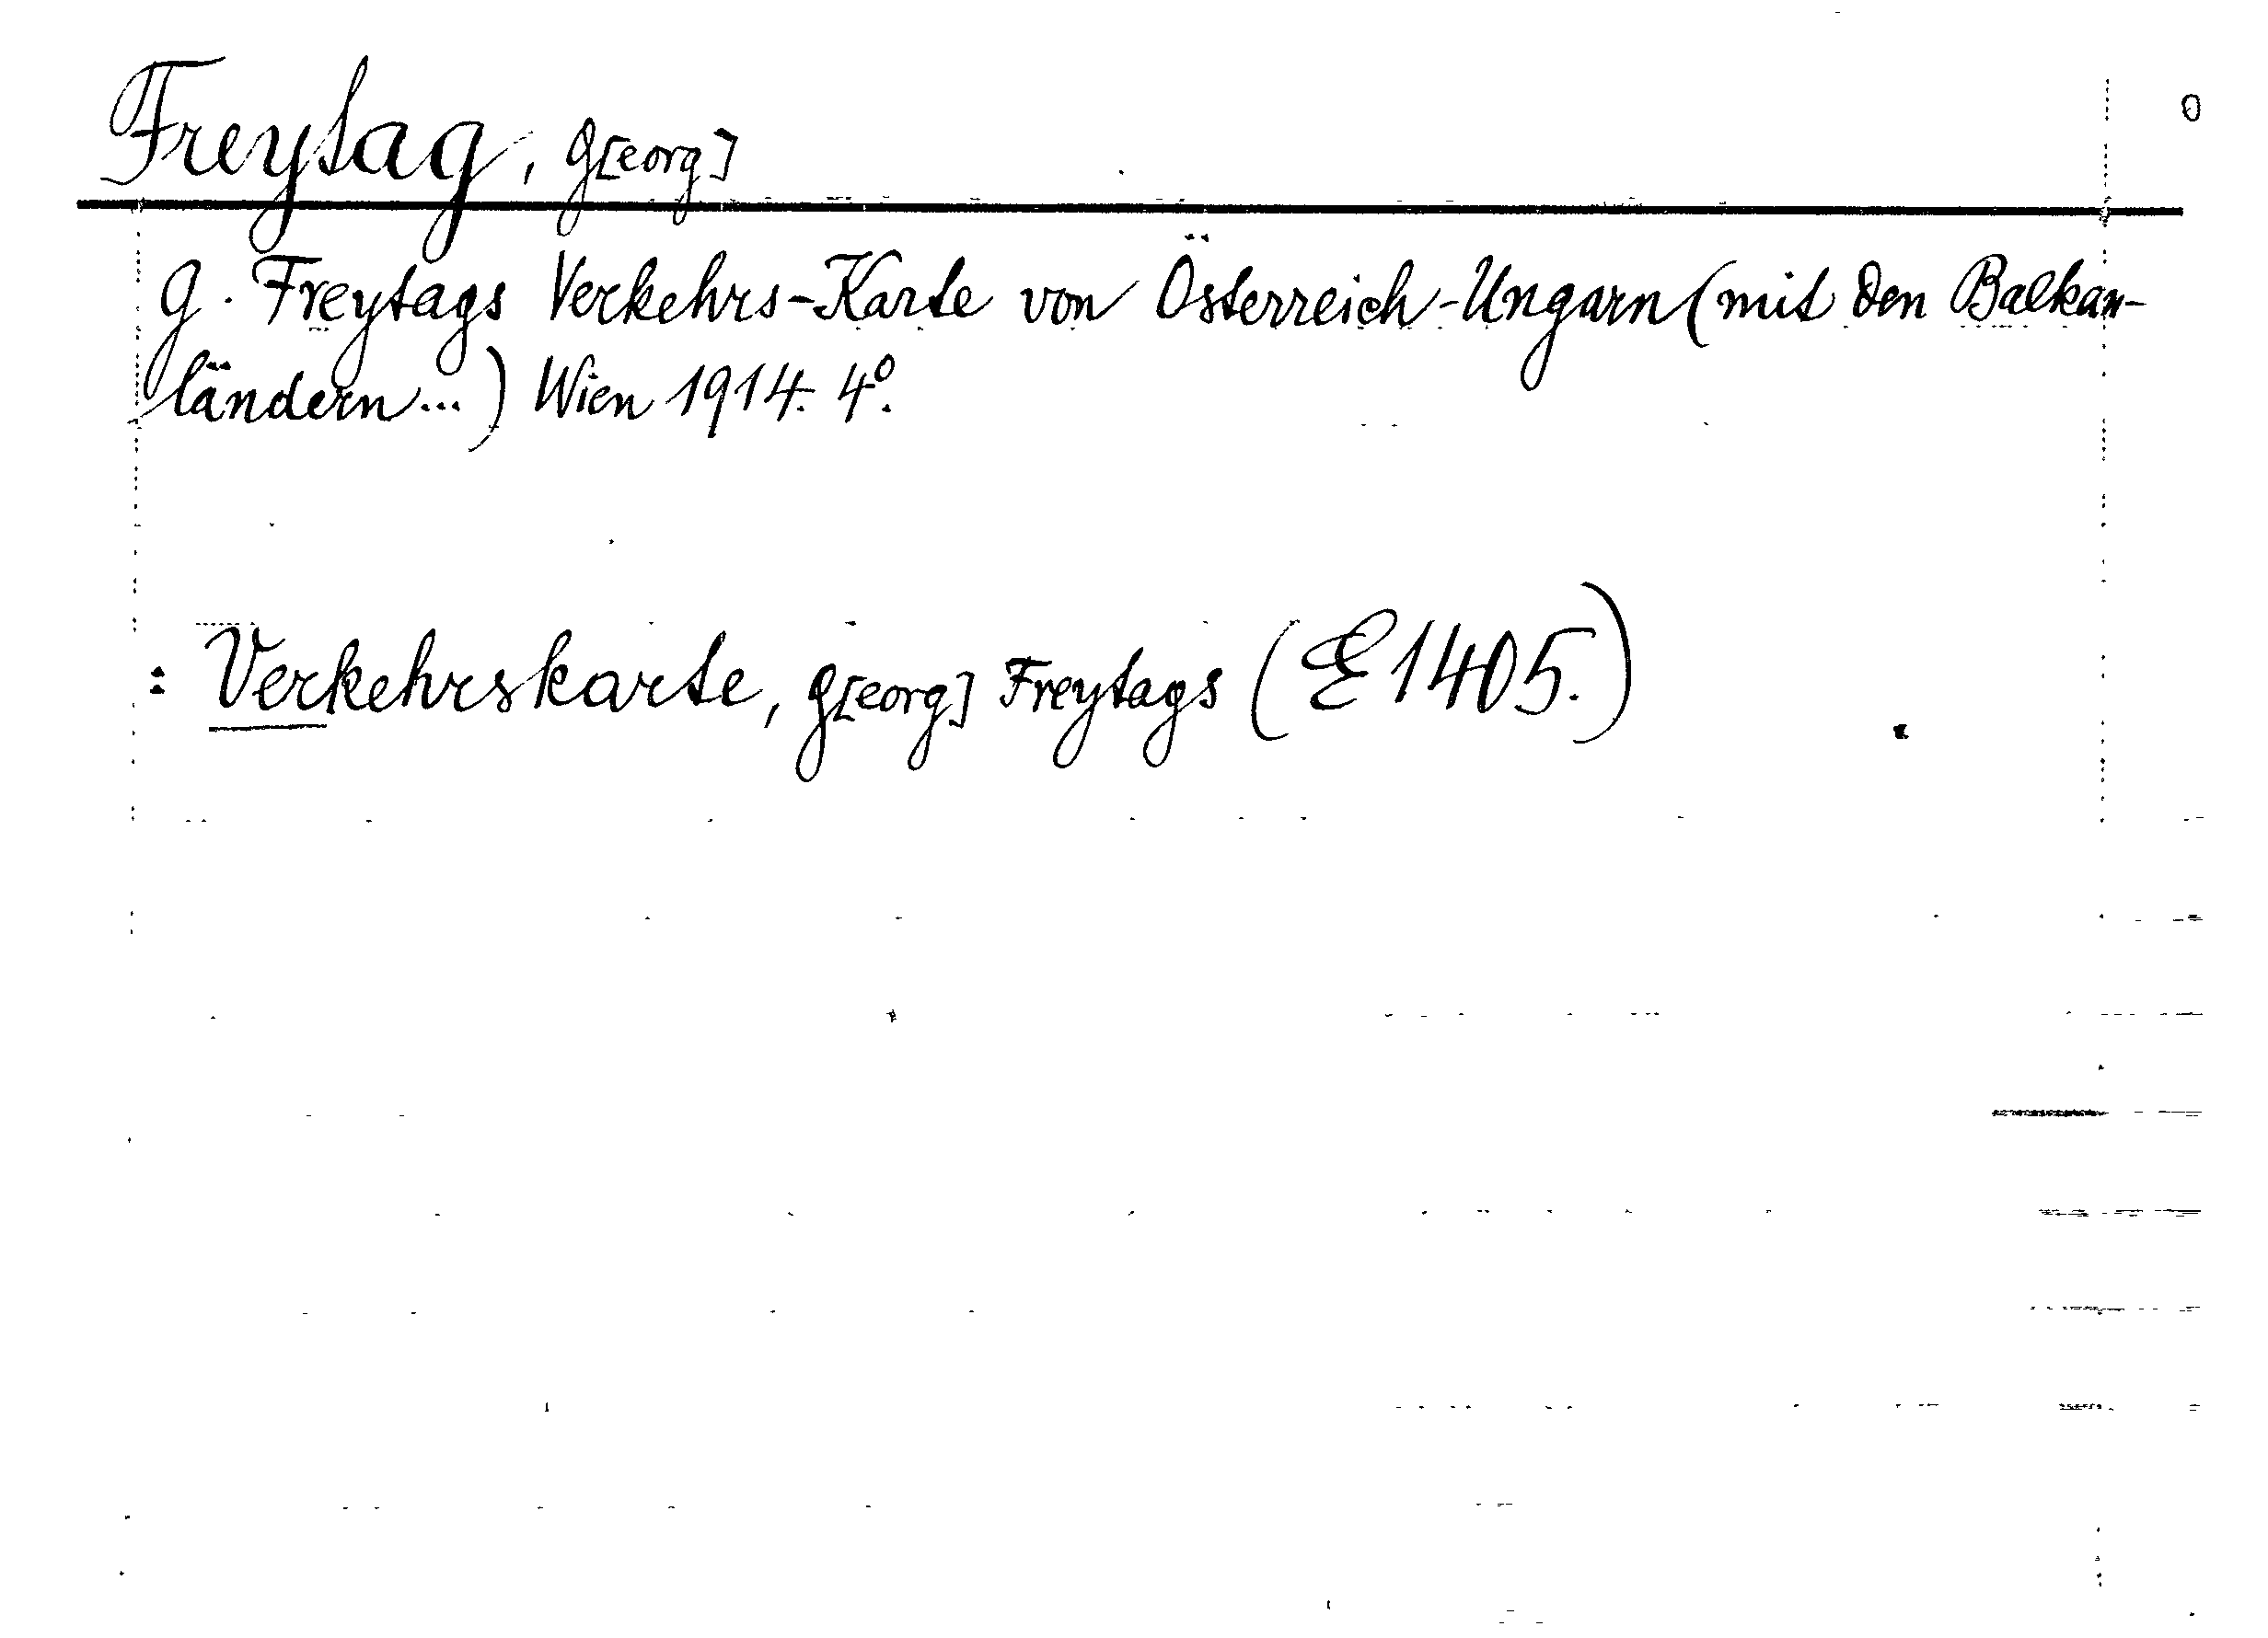 Freytag, G[eorg]
0
G. Freytags Verkehrs-Karte von Österreich-Ungarn (mit den Balkan-
ländern...) Wien 1914. 4º.
: Verkehrskarte, G[eorg] Freytags (E 1405.)